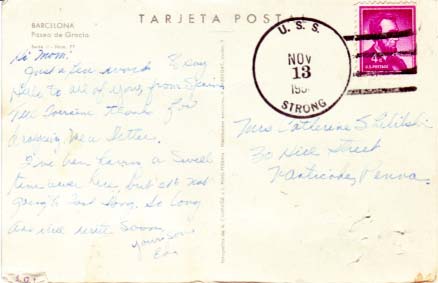 BARCELONA
Paseo de Gracia
TARJETA POSTAL
Hi Mom.
Just a few words to say
hello to all of you, from Spain
Tell Lorraine thanks for
me a letter.
I've been having a swell
time over here, but it's not
going to last long. So long
and will write soon
your son
U.S.S.
NOV
13
STRONG
4¢
U.S. POSTAGE
Mrs. Catherine
30 Hill Street
Nanticoke, Penna.